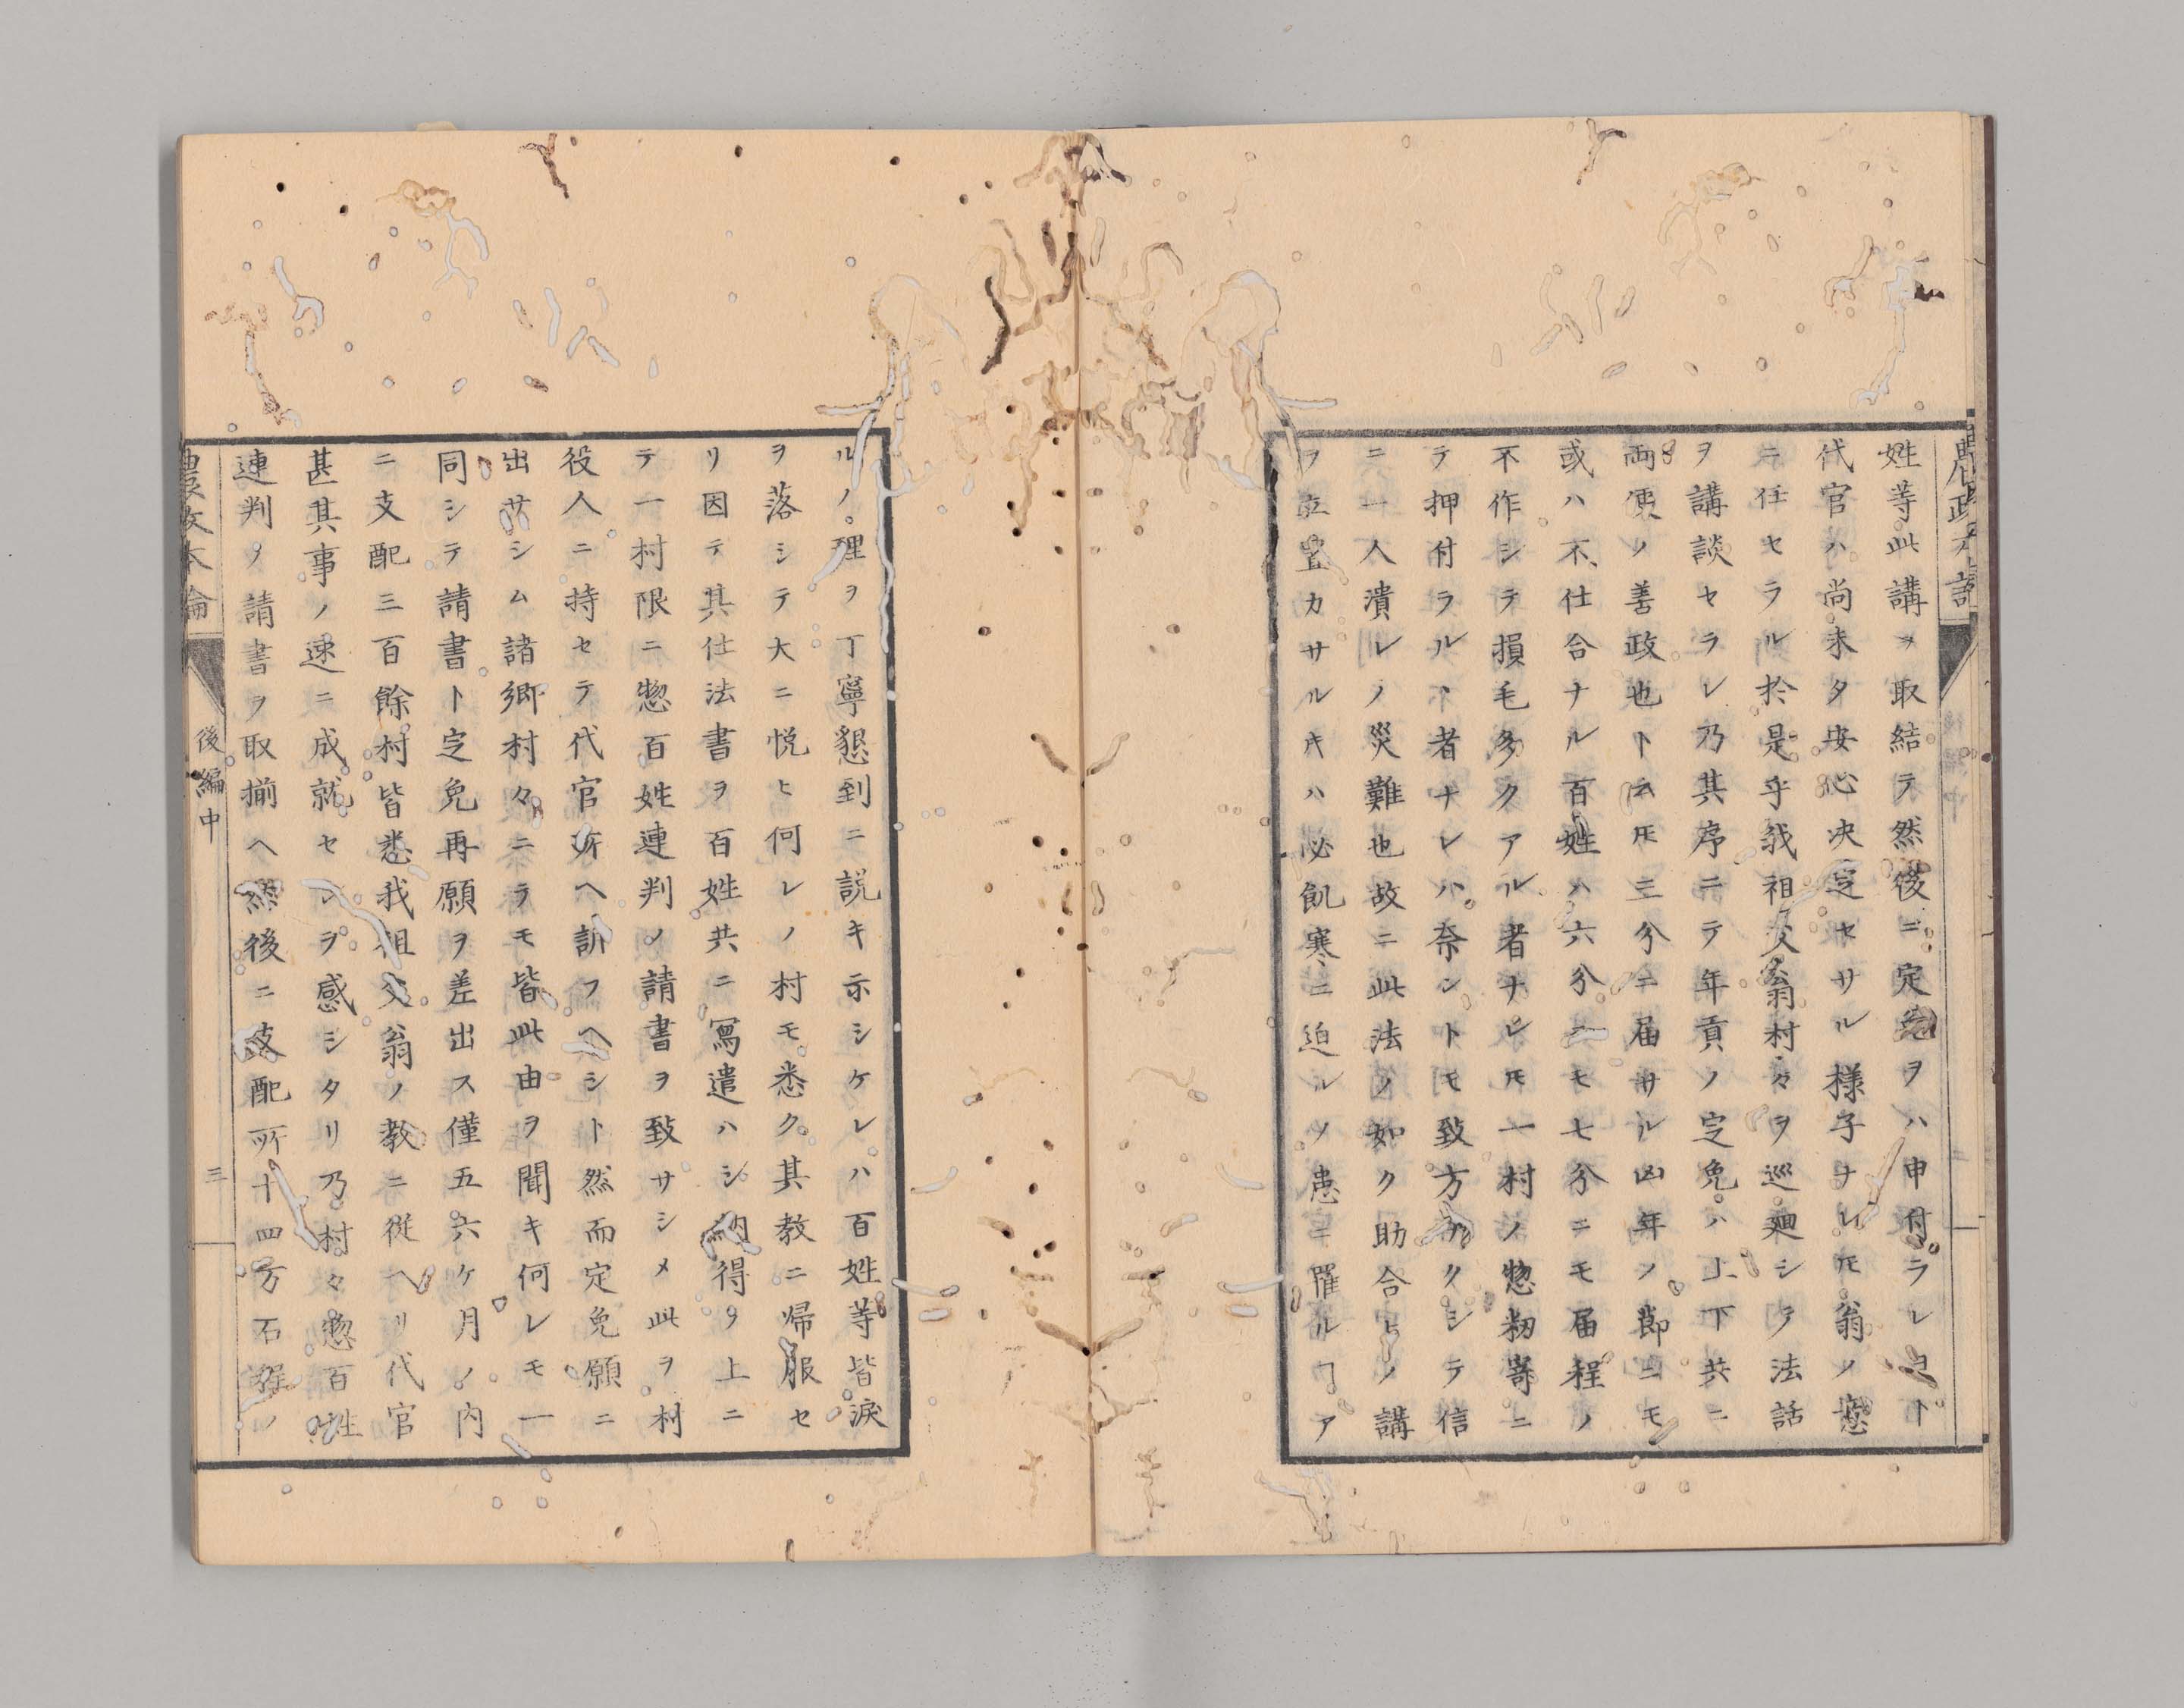 姓等此講ヲ取結テ然後ニ定免ヲハ申付ラレヨト
代官ハ尚未タ安心决定セサル様子ナレ𪜈翁ノ意
ニ任セラル於是乎我祖父翁村々ヲ巡廻シテ法話
ヲ講談セラレ乃其序ニテ年貢ノ定免ハ上下共ニ
両便ノ善政也ト云𪜈三分ニ届サル凶年ノ節ニモ
或ハ不仕合ナル百姓ハ六分ニモ七分ニモ届程ノ
不作シテ損毛多クアル者ナレ𪜈一村ノ惣籾嵜ニ
テ押付ラルヽ者ナレハ奈ントモ致方ナクシテ信
ニ一人潰レノ災難也故ニ此法ノ如ク助合ヒノ講
ヲ立置カサルキハ必飢寒ニ迫ルノ患ニ罹ルヿア
ルノ理ヲ丁寧懇到ニ説キ示シケレハ百姓等皆涙
ヲ落シテ大ニ悦ヒ何レノ村モ悉ク其教ニ帰服セ
リ因テ其仕法書ヲ百姓共ニ寫遣ハシ納得ノ上ニ
テ一村限ニ惣百姓連判ノ請書ヲ致サシメ此ヲ村
役人ニ持セテ代官所ヘ訴フヘシト然而定免願ニ
出サシム諸郷村々ニテモ皆此由ヲ聞キ何レモ一
同シテ請書ト定免再願ヲ差出ス僅五六ケ月ノ内
ニ支配三百餘村皆悉我祖父翁ノ教ニ從ヘリ代官
甚其事ノ速ニ成就セシヲ感シタリ乃村々惣百姓
連判ノ請書ヲ取揃ヘ然後ニ支配所十四万石程ノ
農政本論
後編中
三